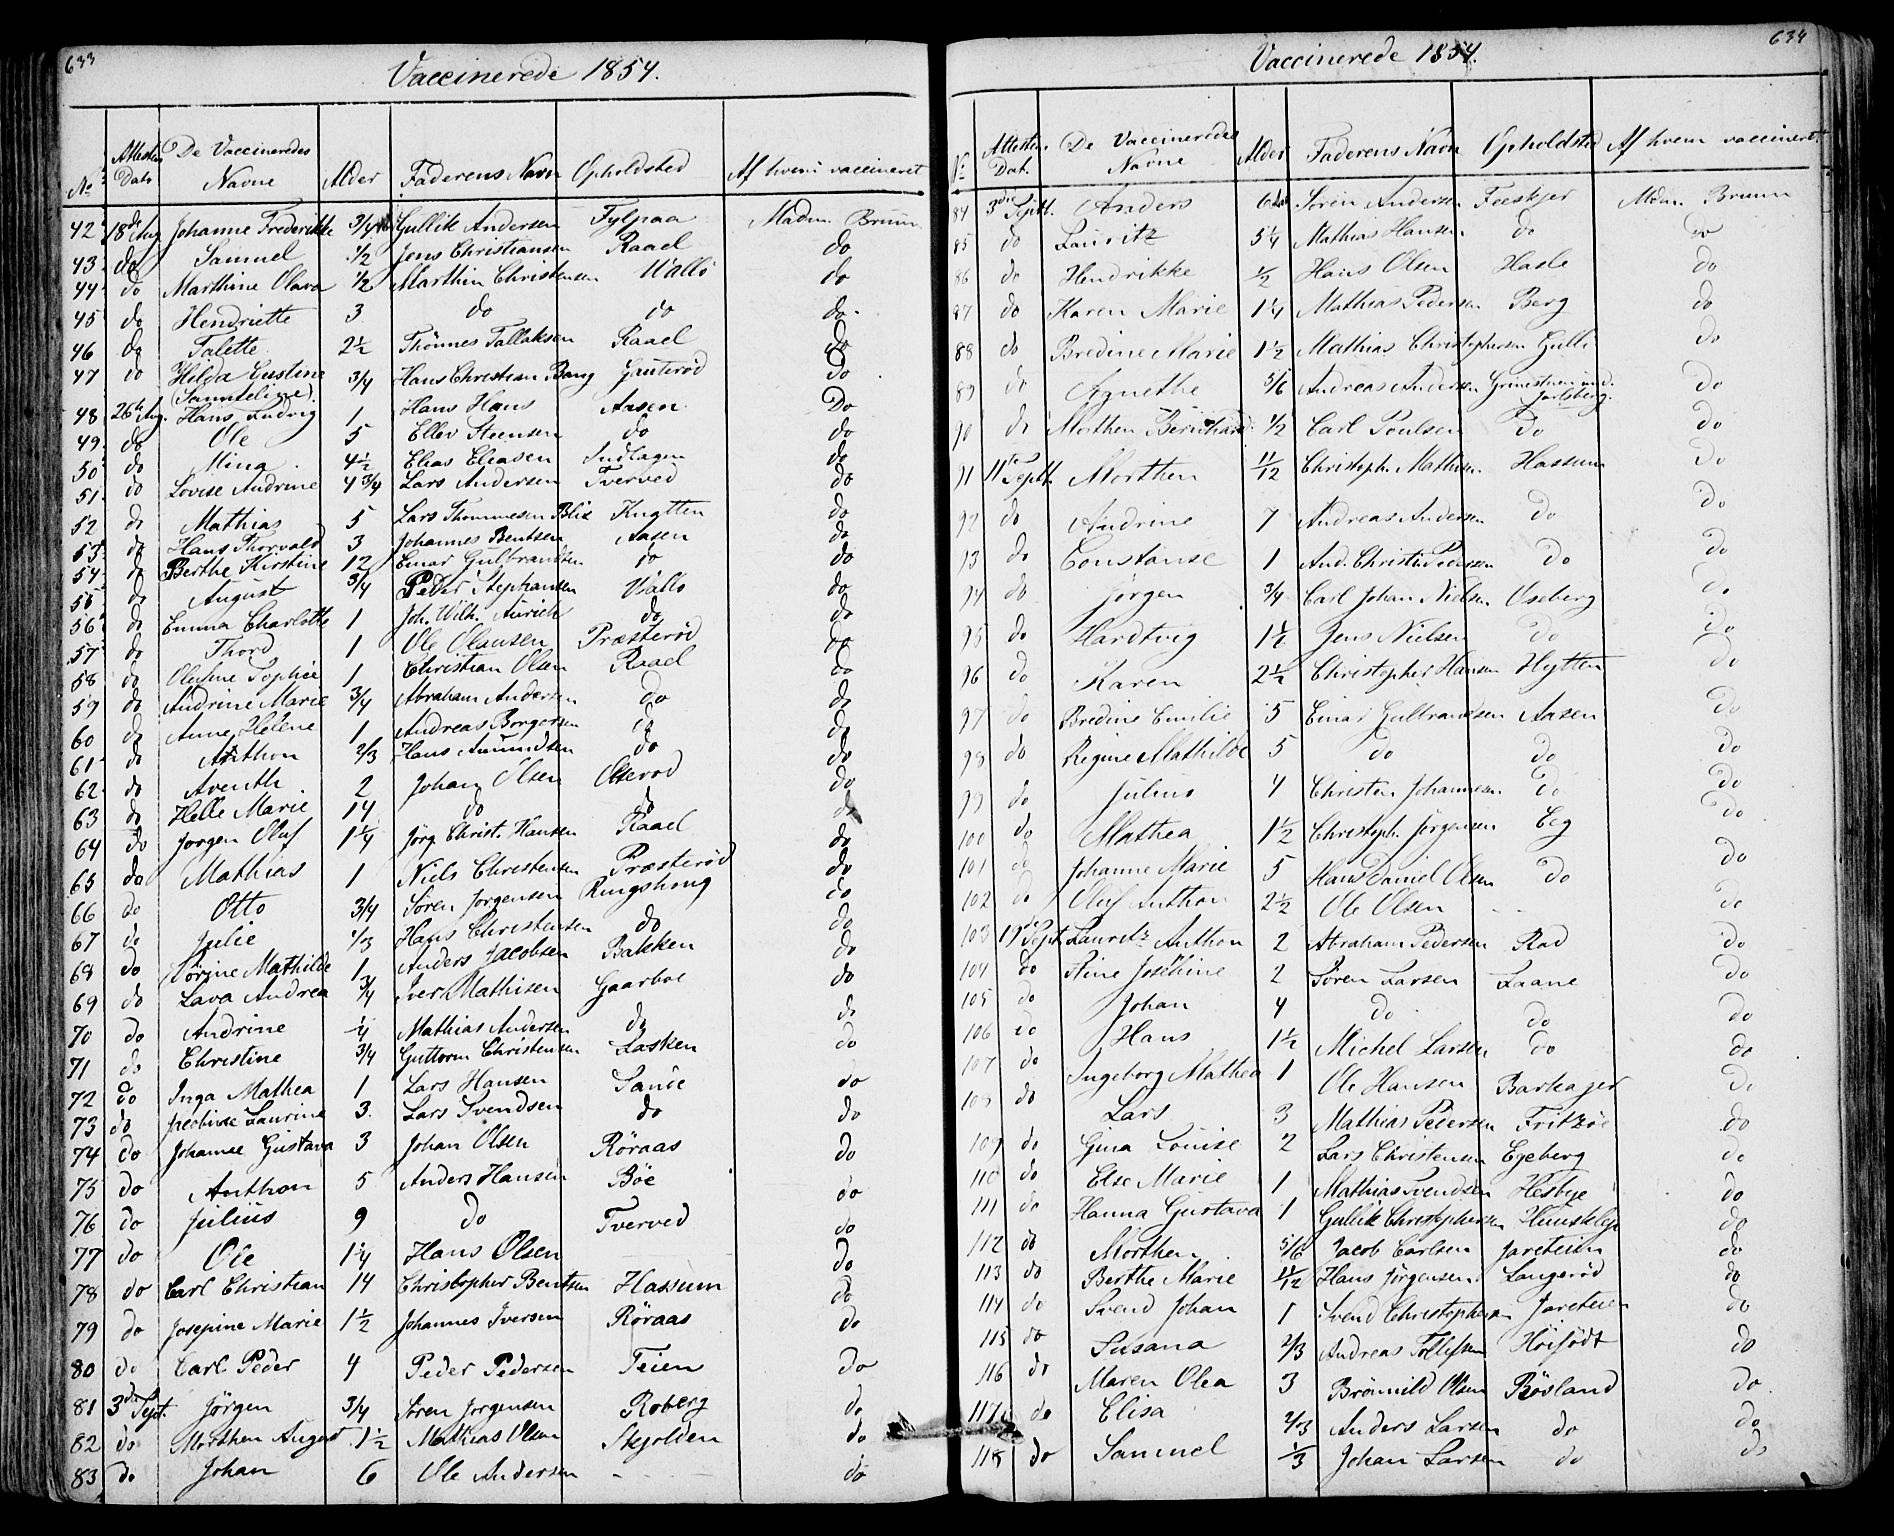 633
Vaccinerede 1854.
No Attestens Dato De Vaccineredes Navne Alder Faderens Navn Opholdsted Af hvem vaccineret
42 18de Aug Johanne Frederikke 3/4 Gullik Andersen Fylpaa Madm. Bruun
43 do Samuel 1/2 Jens Christiansen Raael do
44 do Marthine Olava 1/2 Marthin Christensen Vallö do
45 do Henriette 3 do do do
46 do Talette 2 1/2 Thönnes Tallaksen Raael do
47 do Hilda Eustine (Sanneline) 3/4 Hans Christian Bang Gauterød do
48 26de Aug. Hans Ludvig 1 Hans Hans Aasen Do
49 do Ole 5 Ellev Steensen do do
50 do Mina 4 1/2 Elias Eliasen Indlagen do
51 do Lovise Andrine 4 3/4 Lars Andersen Tverved do
52 do Mathias 5 Lars Thommesen Blix Knatten do
53 do Hans Thorvald 3 Johannes Bentsen Aasen do
54 do Berthe Kirstine 12 Einar Gulbrandsen do do
55 do August 3/4 Peder Stephansen Vallö do
56 do Emma Charlotte 1 Joh. Wilh. Aurich do do
57 do Thord 1 Ole Olausen Præsterød do
58 do Oleline Sophie 1 Christian Olsen Raael do
59 do Andrine Marie 3/4 Abraham Andersen do do
60 do Anne Helene 1 Andreas Borgersen do do
61 do Anthon 2/3 Hans Amundsen do do
62 do Aventh 2 Johan Olsen Olserød do
63 do Helle Marie 14 do do do
64 do Jorgen Oluf 1 1/4 Jörg. Christ. Hansen Raael do
65 do Mathias 1 Niels Christensen Præsterød do
66 do Otto 3/4 Sören Jorgensen Ringshoug do
67 do Julie 1/3 Hans Christensen do do
68 do Sörine Mathilde 1 Anders Jacobsen Bakken do
69 do Lava Andrea 3/4 Iver Mathisen Gaarboe do
70 do Andrine 1/4 Mathias Andersen do do
71 do Christine 3/4 Guttorm Christensen Lasken do
72 do Inga Mathea 1 Lars Hansen Sande do
73 do Laurine 3 Lars Svendsen do do
74 do Johanne Gustava 3 Johan Olsen Röraas do
75 do Anthon 5 Anders Hansen Böe do
76 do Julius 9 do Tverved do
77 do Ole 1 1/4 Hans Olsen do
78 do Carl Christian 14 Christopher Bentsen Hassum do
79 do Josepine Marie 1 1/2 Johannes Iversen Röraas do
80 do Carl Peder 4 Peder Pedersen Teien do
81 3die Sept. Jörgen 3/4 Sören Jorgensen Roberg do
82 do Morthen August 1 1/2 Mathias Olsen Skjolden do
83 do Johan 6 Ole Andersen - - do
634
Vaccinerede 1854.
No Attestens Dat. De Vaccineredes Navne Alder Faderens Navn Opholdsted Af hvem vaccineret
84 3die Septb. Anders Sörin Andersen Feeskjer Mdm. Bruun
85 do Lauritz 5 1/4 Mathias Hansen do do
86 do Hendrikke 1/2 Hans Olsen Hasle do
87 do Karen Marie 1 1/4 Mathias Pedersen Berg do
88 do Bredine Marie 1 1/2 Mathias Christophersen Gulli do
89 do Agnethe 5/6 Andreas Andersen Jarlsberg. do
90 do Morthen Bernhard 1/2 Carl Poulsen Do do
91 11te Septb. Morthen 11/12 Christoph. Mathisen Hassum do
92 do Andrine 7 Andreas Andersen do do
93 do Constanse 1 And. Christi Pedersen do do
94 do Jörgen 3/4 Carl Johan Nielsen Oseberg do
95 do Hardtvig 1 1/2 Jens Nielsen do do
96 do Karen 2 1/2 Christopher Hansen Hytten do
97 do Bredine Emilie 5 Einar Gulbrandsen Aasen do
98 do Regine Mathilde 5 do do do
99 do Julius 4 Christen Johannesen do do
100 do Mathea 1 1/2 Christoph. Jørgensen Eeg do
101 do Johanne Marie 5 Hans Daniel Olsen do do
102 do Oluf Anthon 2 1/2 Ole Olsen - - do
103 19de Sept. Lauritz Anthon 2 Abraham Pedersen Rød do
104 do Stine Josephine 2 Sören Larsen Laane do
105 do Johan 4 do do do
106 do Hans 1 1/2 Michel Larsen do do
107 do Ingeborg Mathea 1 Ole Hansen Barkajer do
108 do Lars 3 Mathias Pedersen Fritzöe do
109 do Gina Louise 2 Lars Christensen Egeberg do
110 do Else Marie 1 Mathias Svendsen Hesbye do
111 do Hanna Gustava 1 Gullik Christophersen Hunsklep do
112 do Morthen 5/6 Jacob Carlsen Jareteien do
113 do Berthe Marie 11/12 Hans Jörgensen Langerød do
114 do Svend Johan 1 Svend Christophersen Jareteien do
115 do Susana 2/3 Andreas Tollefsen Höifödt do
116 do Maren Olea 3 Brönnild Olsen Rösland do
117 do Elisa 2/3 Anders Larsen do do
118 do Samuel 1/3 Johan Larsen do do